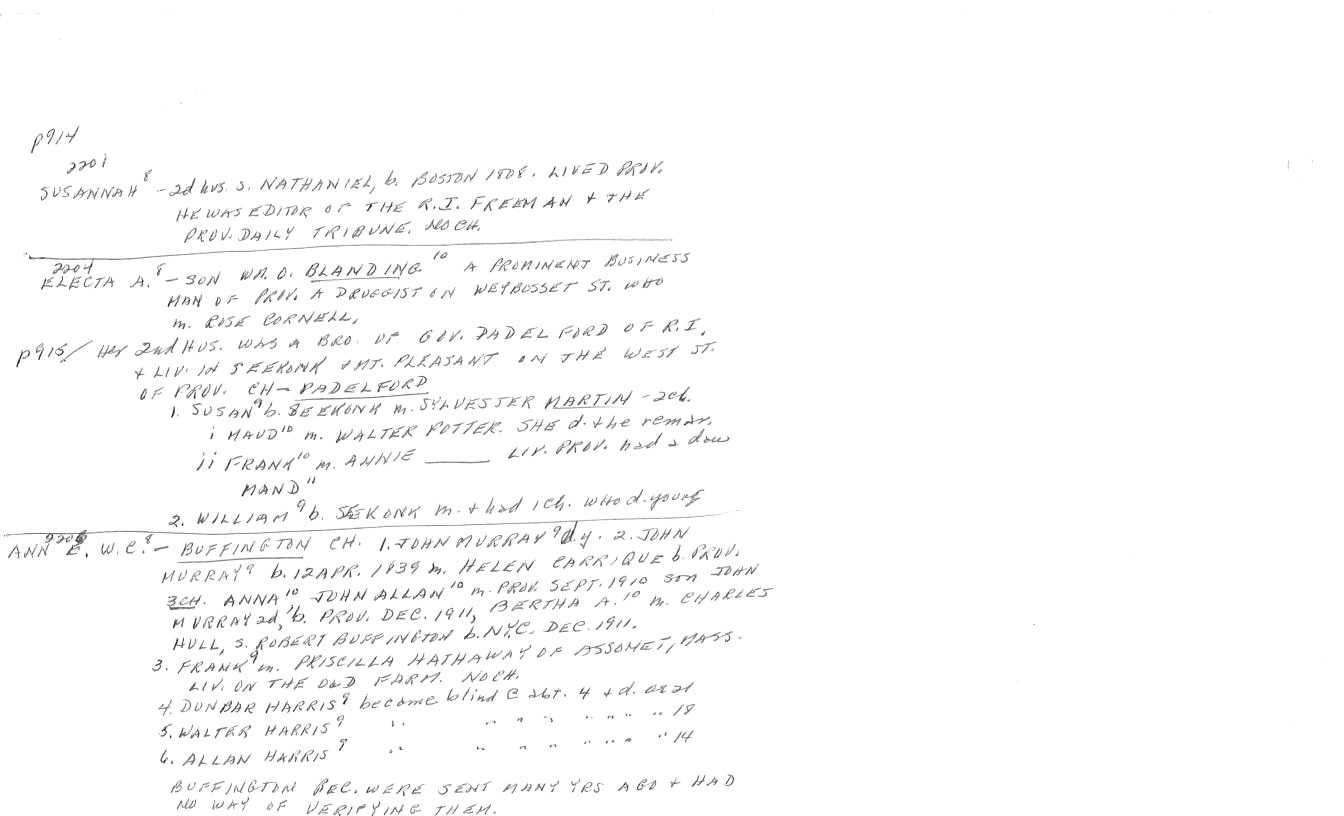 p914
2201
SUSANNAH⁸ - 2d hus. s. NATHANIEL, b. BOSTON 1808. LIVED PROV.
HE WAS EDITOR OF THE R.I. FREEMAN + THE
PROV. DAILY TRIBUNE. NO CH.
2204
ELECTA A.⁸ - SON WM. O. BLANDING¹⁰ A PROMINENT BUSINESS
MAN OF PROV. A DRUGGIST ON WEYBOSSET ST. WHO
m. ROSE CORNELL.
p915/ Her 2nd HUS. WAS A BRO. OF GOV. PADELFORD OF R.I.
+ LIV. IN SEEKONK + MT. PLEASANT ON THE WEST ST.
OF PROV. CH - PADELFORD
1. SUSAN⁹ b. SEEKONK m. SYLVESTER MARTIN - 2ch.
i MAUD¹⁰ m. WALTER POTTER. SHE d. + he remar.
ii FRANK¹⁰ m. ANNIE ____ LIV. PROV. had a dau
MAND¹¹
2. WILLIAM⁹ b. SEEKONK m. + had 1 ch. who d. young
2206
ANN E. W.C.⁸ - BUFFINGTON CH. 1. JOHN MURRAY⁹ d.y. 2. JOHN
MURRAY⁹ b. 12 APR. 1839 m. HELEN CARRIQUE b. PROV.
3CH. ANNA¹⁰ JOHN ALLAN¹⁰ m. PROV. SEPT. 1910 son JOHN
MURRAY 2d,¹¹ b. PROV. DEC. 1911, BERTHA A.¹⁰ m. CHARLES
HULL, s. ROBERT BUFFINGTON b. N.Y.C. DEC. 1911.
3. FRANK⁹ m. PRISCILLA HATHAWAY OF ASSONET, MASS.
LIV. ON THE OLD FARM. NO CH.
4. DUNBAR HARRIS⁹ become blind @ abt. 4 + d. at 21
5. WALTER HARRIS⁹ " " " " " " " " 18
6. ALLAN HARRIS⁹ " " " " " " " " 14
BUFFINGTON REC. WERE SENT MANY YRS AGO + HAD
NO WAY OF VERIFYING THEM.